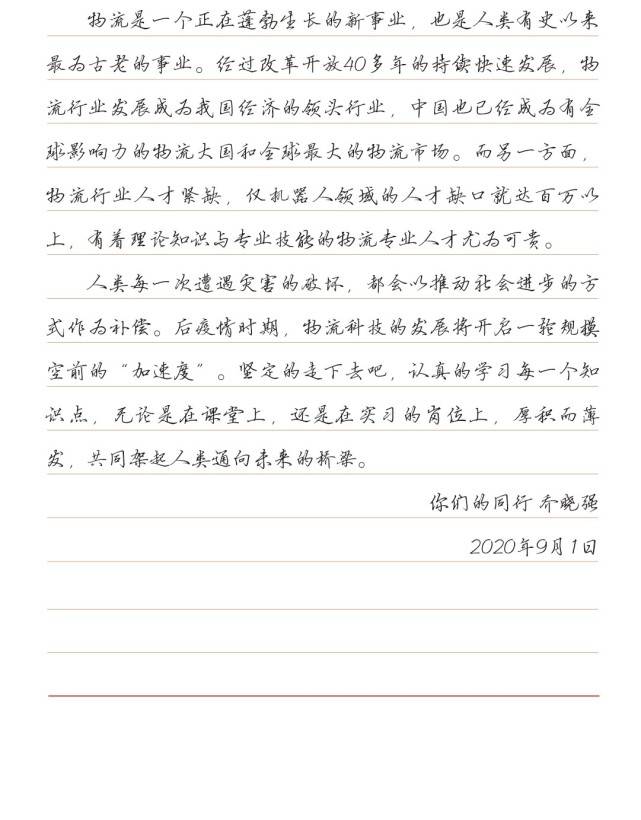 物流是一个正在蓬勃生长的新事业，也是人类有史以来
最为古老的事业。经过改革开放40多年的持续快速发展，物
流行业发展成为我国经济的领头行业，中国也已经成为有全
球影响力的物流大国和全球最大的物流市场。而另一方面，
物流行业人才紧缺，仅机器人领域的人才缺口就达百万以
上，有着理论知识与专业技能的物流专业人才尤为可贵。
人类每一次遭遇灾害的破坏，都会以推动社会进步的方
式作为补偿。后疫情时期，物流科技的发展将开启一轮规模
空前的“加速度”。坚定的走下去吧，认真的学习每一个知
识点，无论是在课堂上，还是在实习的岗位上，厚积而薄
发，共同架起人类通向未来的桥梁。
你们的同行 乔晓强
2020年9月1日